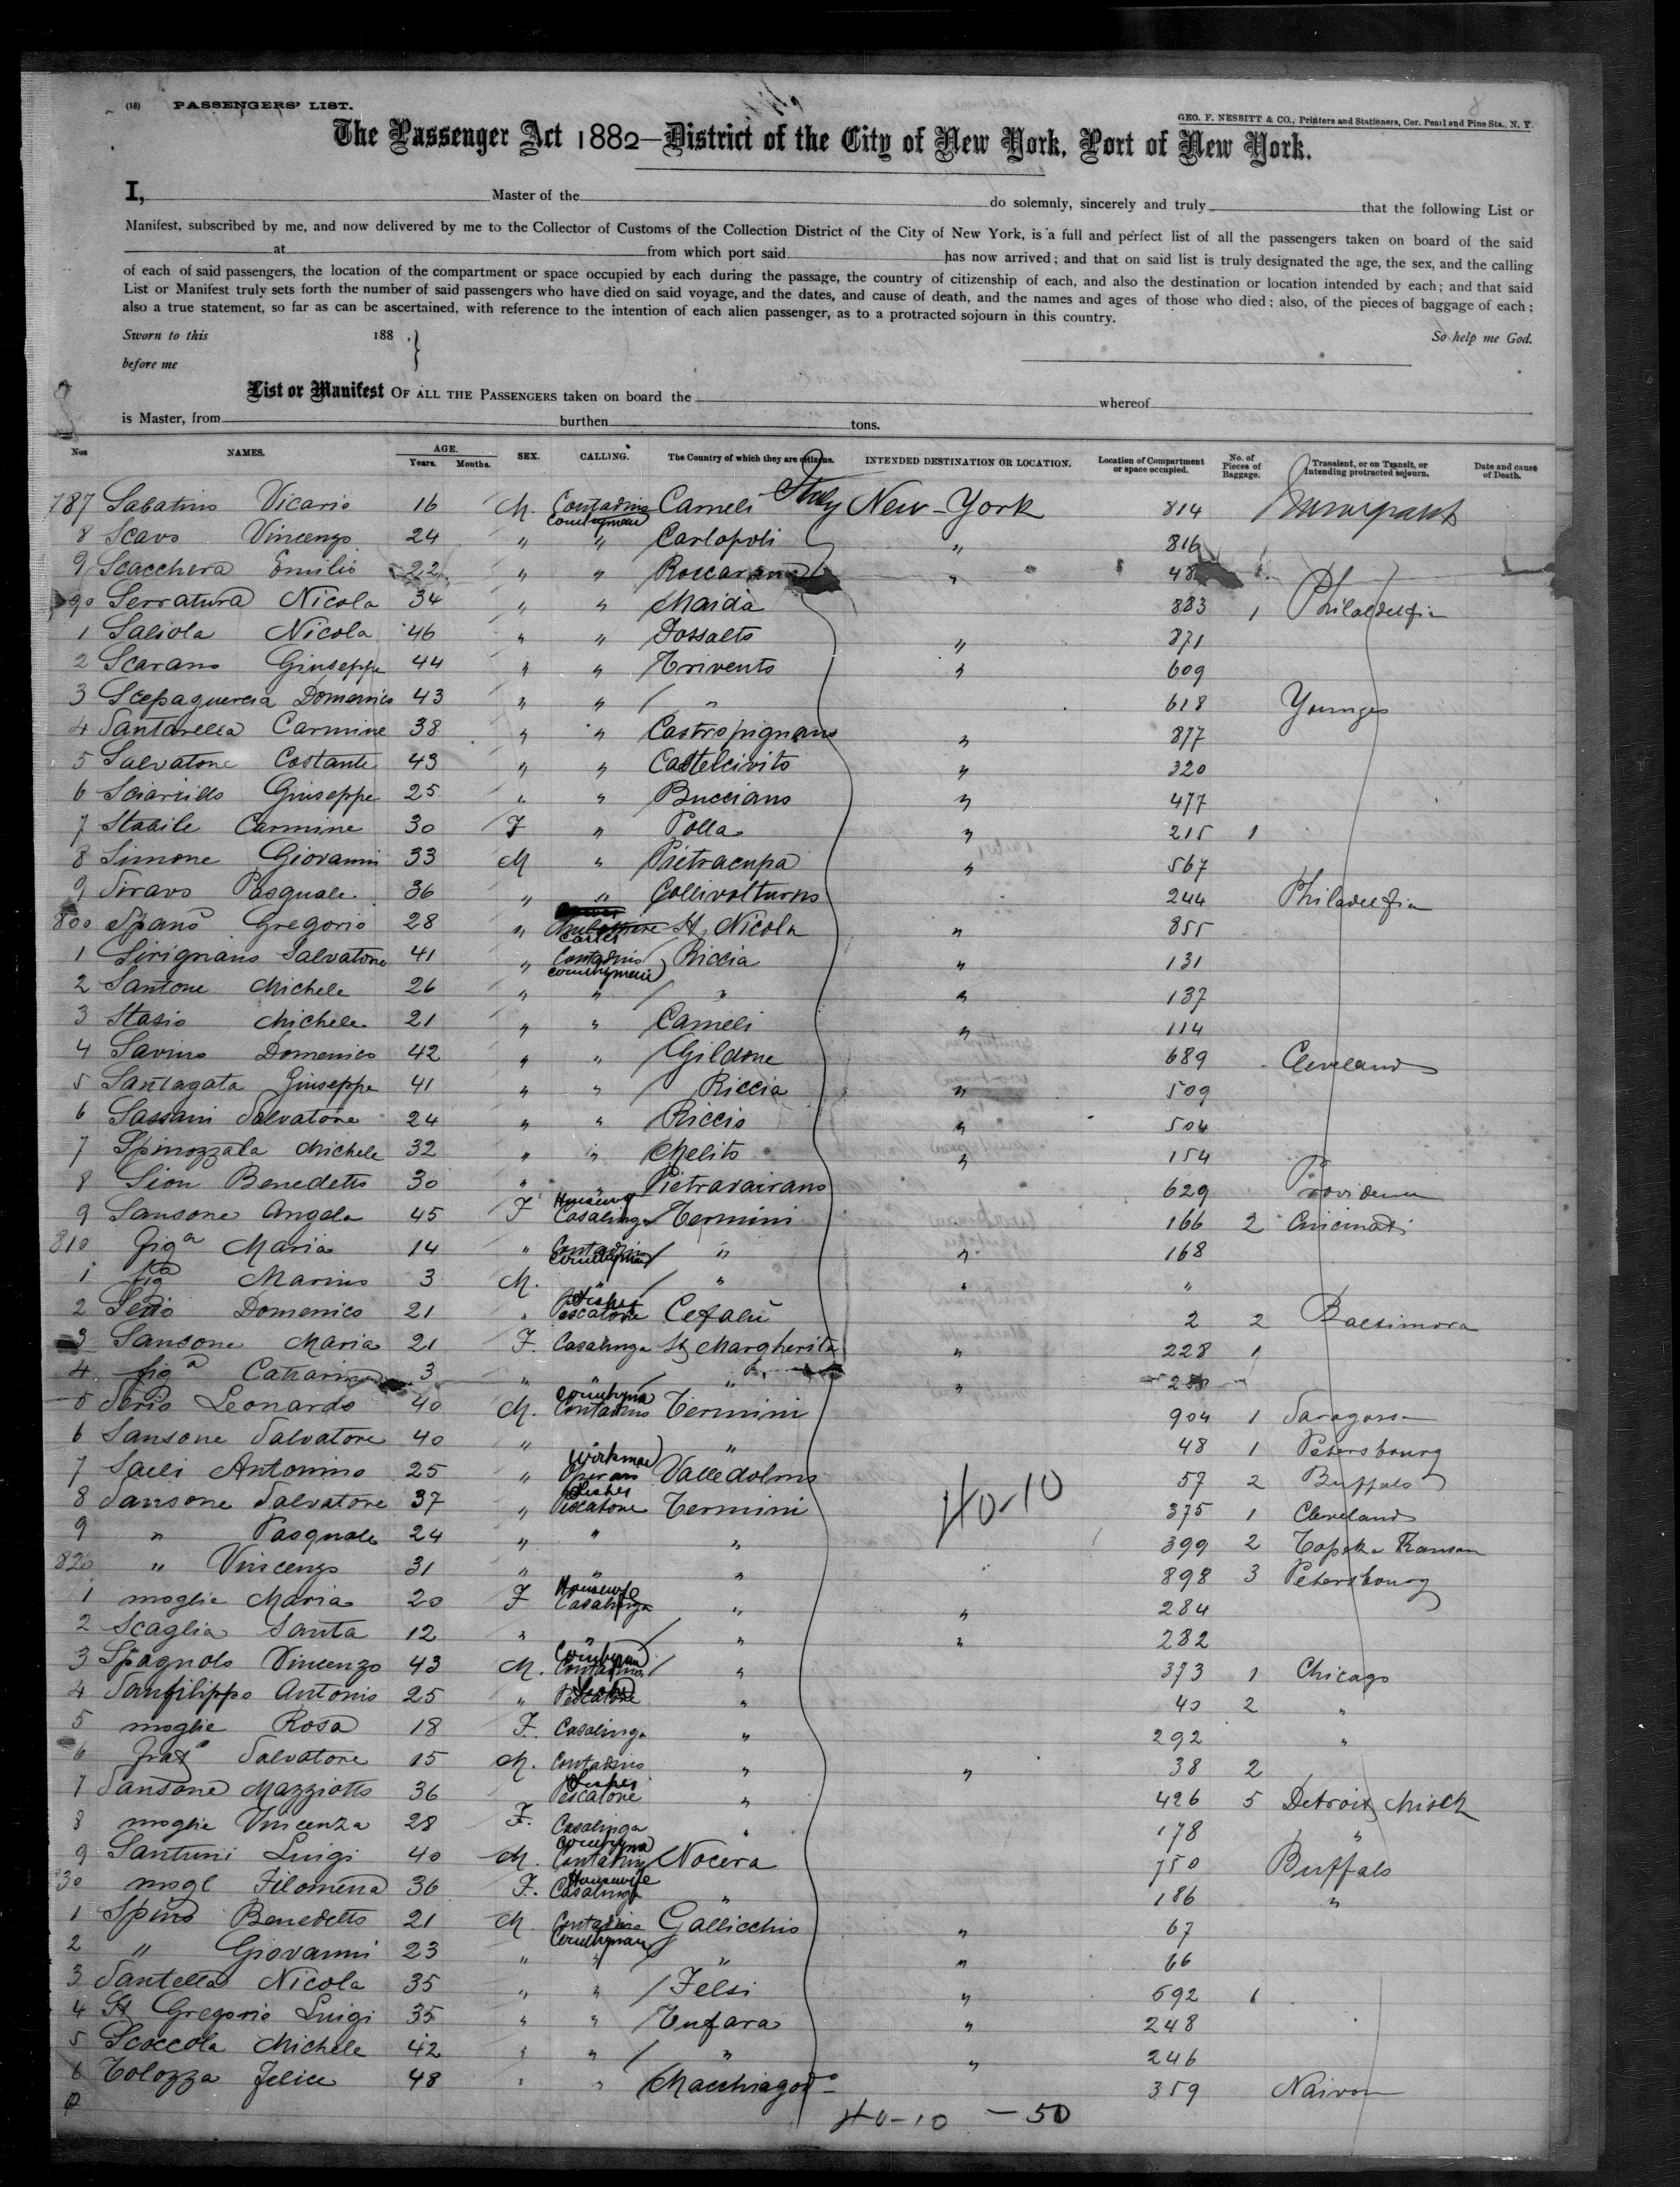 (18) PASSENGERS' LIST.
GEO. F. NESBITT & CO., Printers and Stationers, Cor. Pearl and Pine Sts., N. Y.
The Passenger Act 1882—District of the City of New York, Port of New York.
I, Master of the do solemnly, sincerely and truly that the following List or
Manifest, subscribed by me, and now delivered by me to the Collector of Customs of the Collection District of the City of New York, is a full and perfect list of all the passengers taken on board of the said
at from which port said has now arrived; and that on said list is truly designated the age, the sex, and the calling
of each of said passengers, the location of the compartment or space occupied by each during the passage, the country of citizenship of each, and also the destination or location intended by each; and that said
List or Manifest truly sets forth the number of said passengers who have died on said voyage, and the dates, and cause of death, and the names and ages of those who died; also, of the pieces of baggage of each;
also a true statement, so far as can be ascertained, with reference to the intention of each alien passenger, as to a protracted sojourn in this country.
Sworn to this 188 , } So help me God.
before me
List or Manifest OF ALL THE PASSENGERS taken on board the whereof
is Master, from burthen tons.
Nos NAMES. AGE. Years. Months. SEX. CALLING. The Country of which they are citizens. INTENDED DESTINATION OR LOCATION. Location of Compartment or space occupied. No. of Pieces of Baggage. Transient, or on Transit, or Intending protracted sojourn. Date and cause of Death.
787 Sabatino Vicario 16 M. Contadino Countryman Cameli Italy New-York 814
8 Scavo Vincenzo 24 " " Carlopoli " 816
9 Scacchera Emilio 22 " " " 48
90 Serratura Nicola 34 " " Maida 883 1 Philadelfia
1 Saliola Nicola 46 " " Fossalto " 871
2 Scarano Giuseppe 44 " " Trivento " 609
3 Scepaguercia Domenico 43 " " / " 618
4 Santarella Carmine 38 " " Castropignano " 877
5 Salvatore Costante 43 " " Castelcivito " 320
6 Sciarillo Giuseppe 25 " " Bucciano " 477
7 Stabile Carmine 30 F " Polla " 215 1
8 Simone Giovanni 33 M " Pietracupa 567
9 Siravo Pasquale 36 " " Collivolturno 244 Philadelfia
800 Spanò Gregorio 28 " St Nicola " 855
1 Sirignano Salvatore 41 " Contadino countryman Riccia " 131
2 Santone Michele 26 " " / " " 137
3 Stasio Michele 21 " " Cameli " 114
4 Savino Domenico 42 " " Gildone 689 Cleveland
5 Santagata Giuseppe 41 " " Riccia " 509
6 Sassani Salvatore 24 " " Riccio " 504
7 Spinozzala Michele 32 " " Melito " 154
8 Sion Benedetto 30 " " Pietravairano 629 Providence
9 Sansone Angela 45 F Housewife Casalinga Termini 166 2 Cincinati
810 figa Maria 14 " Contadino Countryman / " " 168
1 Marino 3 M. " / " " "
2 Serio Domenico 21 " Fisher Pescatore Cefalù 2 2 Baltimora
3 Sansone Maria 21 F. Casalinga St Margherita " 228 1
4 figa Catarina 3 " " / " "
5 Serio Leonardo 40 M. Countryman Contadino Termini 904 1 Saragossa
6 Sansone Salvatore 40 " " 48 1 Petersbourg
7 Saeli Antonino 25 " Workman Operaio Valledolmo 57 2 Buffalo
8 Sansone Salvatore 37 " Fisher Pescatore Termini 40-10 375 1 Cleveland
9 " Pasquale 24 " " " 399 2 Topeka Kansan
820 " Vincenzo 31 " " " 898 3 Petersbourg
1 moglie Maria 20 F Housewife Casalinga " " 284
2 Scaglia Santa 12 " " / " " 282
3 Spagnolo Vincenzo 43 M. Countryman Contadino / " 373 1 Chicago
4 Sanfilippo Antonio 25 " Fisher Pescatore " 40 2 "
5 moglie Rosa 18 F. Casalinga " 292 "
6 Salvatore 15 M. Contadino " " 38 2
7 Sansone Mazziotto 36 Fisher Pescatore " 426 5 Detroit Mich
8 moglie Vincenza 28 F. Casalinga " 178 "
9 Santuni Luigi 40 M. Countryman Contadino Nocera 750 Buffalo
830 mogl Filomena 36 F. Housewife Casalinga " 186 "
1 Spino Benedetto 21 M. Contadino Countryman Gallicchio " 67
2 " Giovanni 23 " " / " " 66
3 Santella Nicola 35 " " / Felsi " 692 1
4 St Gregorio Luigi 35 " " Tufara " 248
5 Scoccola Michele 42 " " / " " 246
6 Tolozza Felice 48 " " Macchiagodo 359
40-10 — 50